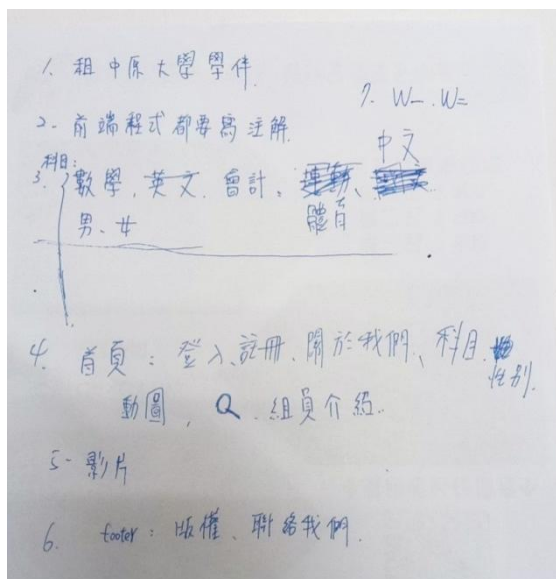 1. 租中原大學學伴
7. W一.W二
2- 前端程式都要寫注解.
科目:
中文
3. 數學、英文、會計、運動、
體育
男、女
4. 首頁:登入、註冊、關於我們、科目、
性別.
動圖, Q、組員介紹.
5- 影片
6. footer:版權、聯絡我們.